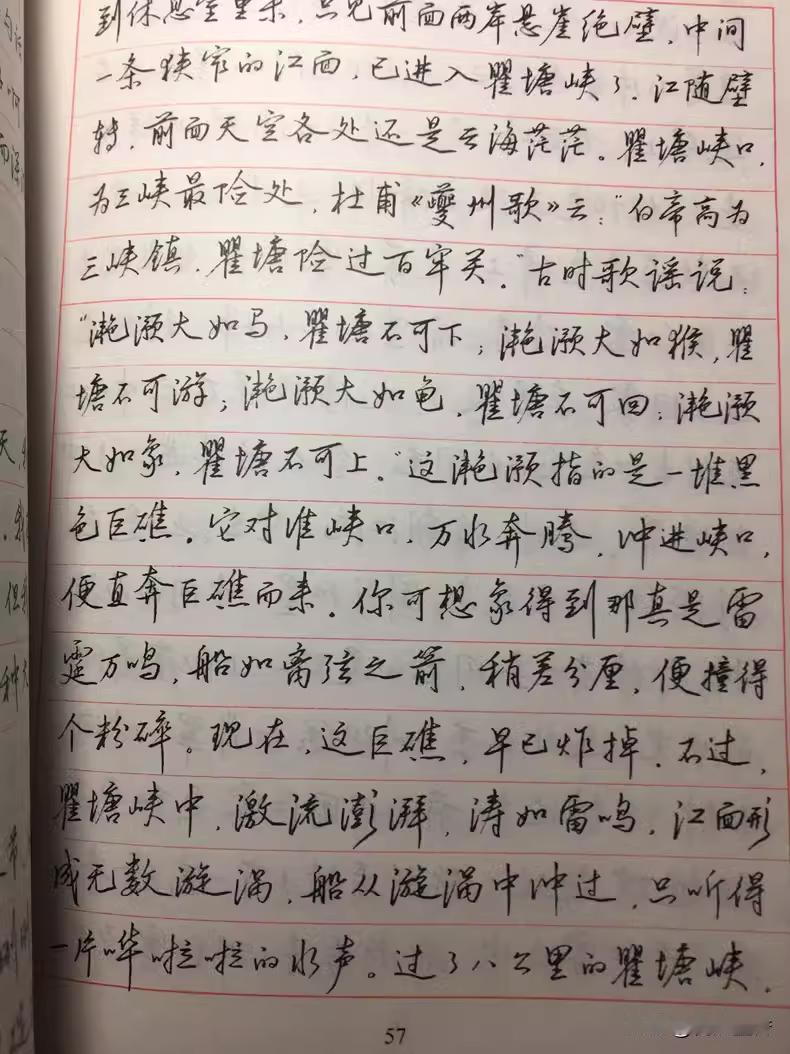 到休息室里来，只见前面两岸悬崖绝壁，中间
一条狭窄的江面，已进入瞿塘峡了。江随壁
转，前面天空各处还是云海茫茫。瞿塘峡口，
为三峡最险处，杜甫《夔州歌》云：“白帝高为
三峡镇，瞿塘险过百牢关。”古时歌谣说：
“滟滪大如马，瞿塘不可下；滟滪大如猴，瞿
塘不可游；滟滪大如龟，瞿塘不可回；滟滪
大如象，瞿塘不可上。”这滟滪指的是一堆黑
色巨礁。它对准峡口，万水奔腾，冲进峡口，
便直奔巨礁而来。你可想象得到那真是雷
霆万鸣，船如离弦之箭，稍差分厘，便撞得
个粉碎。现在，这巨礁，早已炸掉。不过，
瞿塘峡中，激流澎湃，涛如雷鸣，江面形
成无数漩涡，船从漩涡中冲过，只听得
一片哗啦啦的水声。过了八公里的瞿塘峡，
57